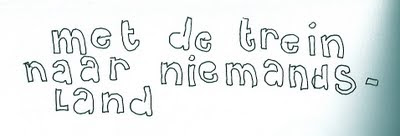 met de trein
naar niemands-
Land